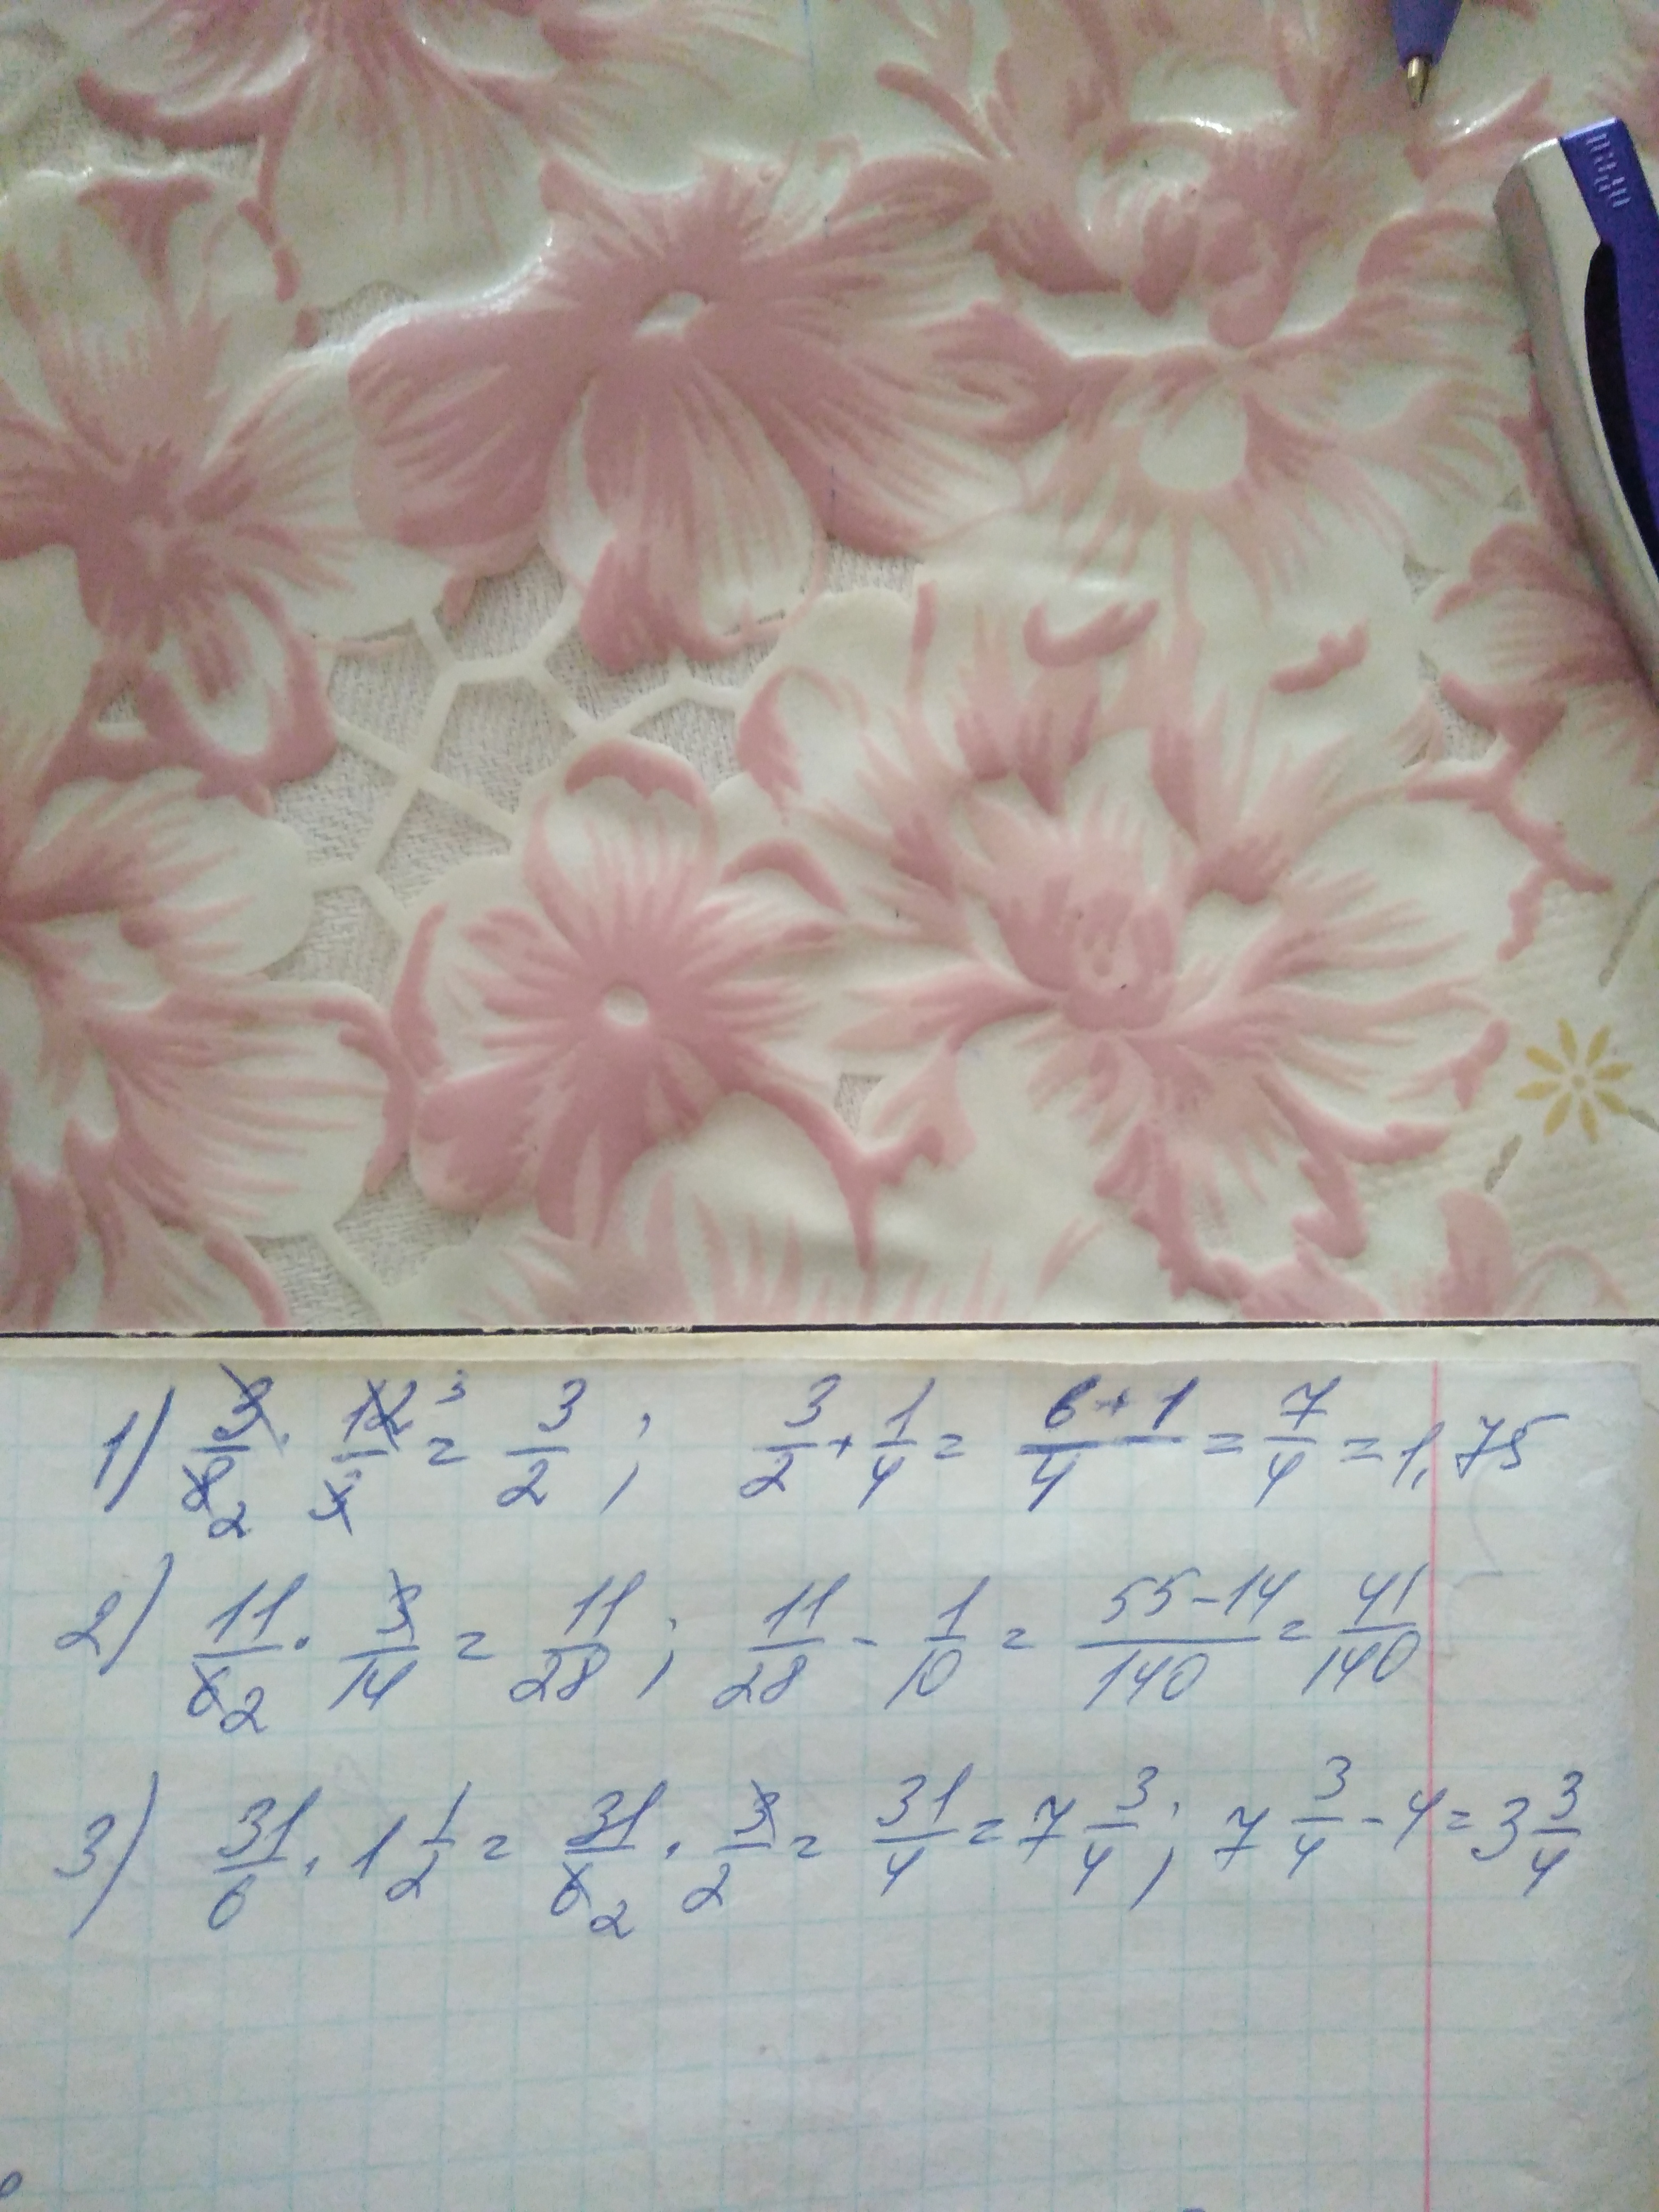 1) 3/8₂ · 12³/3 = 3/2 ; 3/2 + 1/4 = 6+1/4 = 7/4 = 1,75
2) 11/6₂ · 3/14 = 11/28 ; 11/28 - 1/10 = 55-14/140 = 41/140
3) 31/6 · 1 1/2 = 31/6₂ · 3/2 = 31/4 = 7 3/4 ; 7 3/4 - 4 = 3 3/4